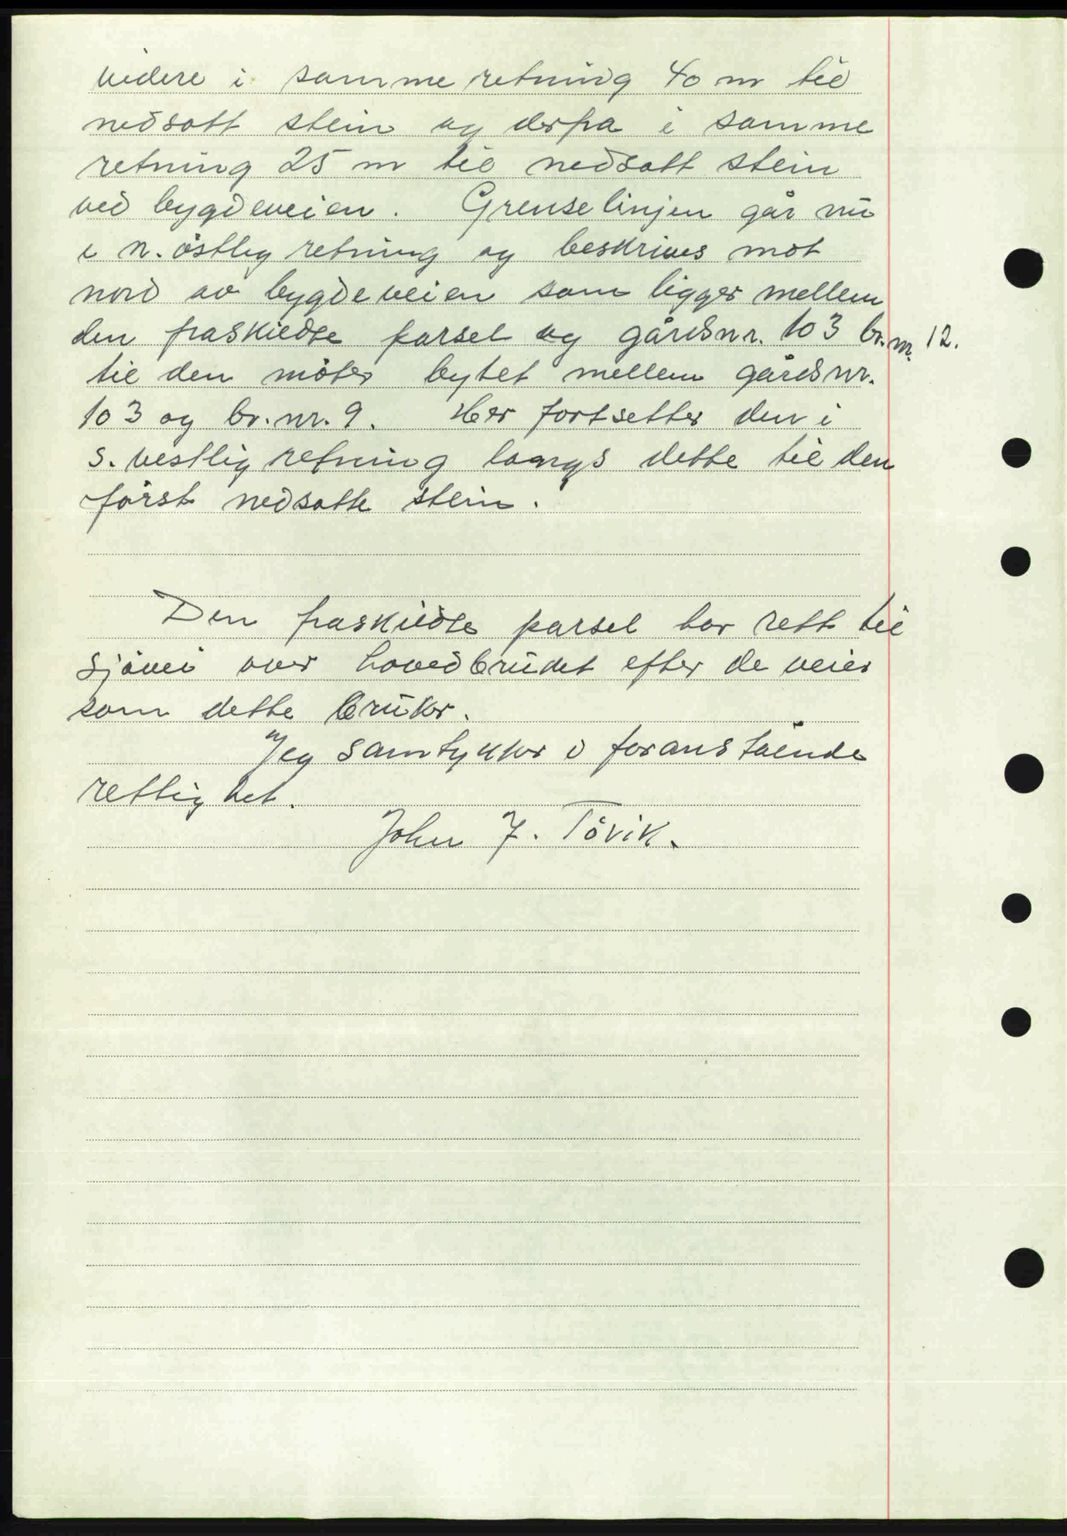 videre i samme retning 40 m til
nedsatt stein og derfra i samme
retning 25 m til nedsatt stein
ved bygdeveien. Grenselinjen går nu
i n. østlig retning og beskrives mot
nord av bygdeveien som ligger mellem
den fraskildte parsel og gårdsnr. 103 br. nr. 12.
til den møter bytet mellem gårdsnr.
103 og br. nr. 9. Her fortsetter den i
s. vestlig retning langs dette til den
først nedsatte stein.
Den fraskildte parsel har rett til
sjøvei over hovedbruket efter de veier
som dette bruker.
Jeg samtykker i foranstående
rettighet.
John J. Tøvik.